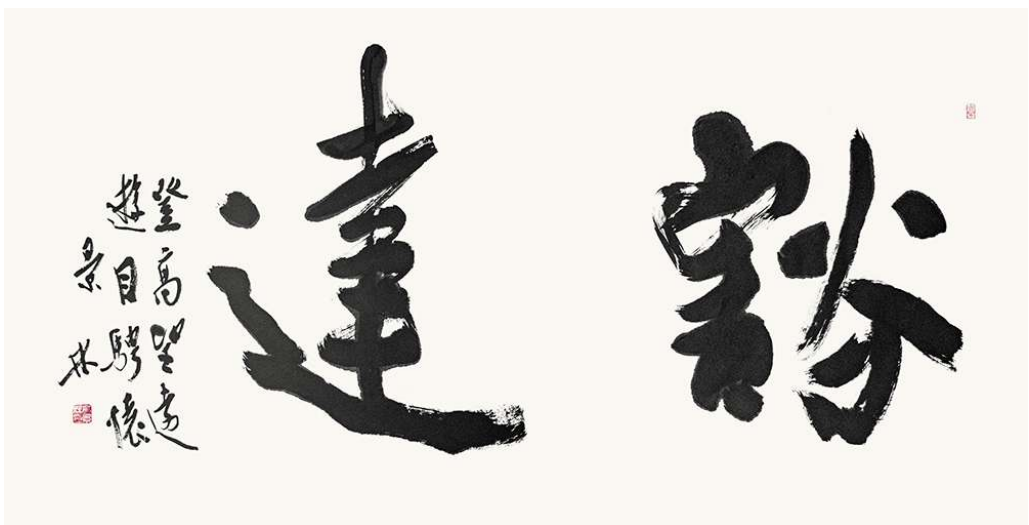 豁達
登高望遠
遊目騁懷
景林